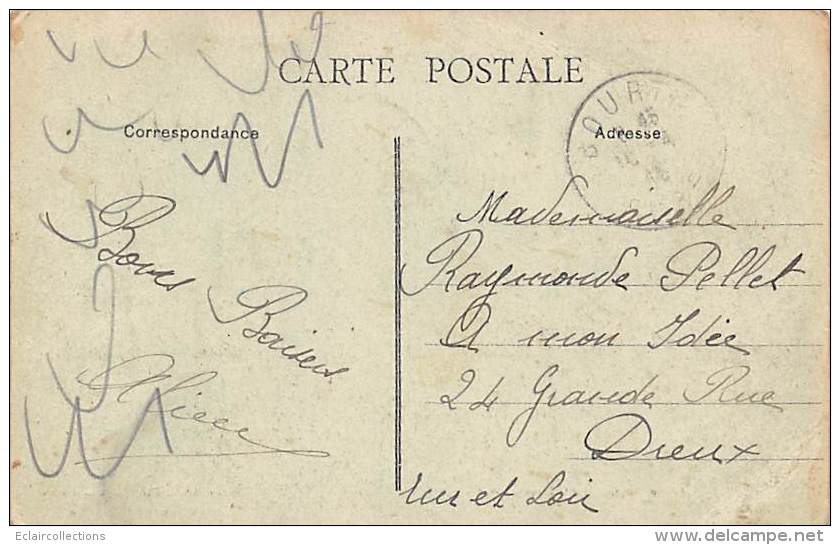 CARTE POSTALE
Correspondance
Adresse
Bons Baisers
Mademoiselle
Raymonde Pellet
A mon Idée
24 Grande Rue
Dreux
Eure et Loir
Eclaircollections
www.delcampe.net